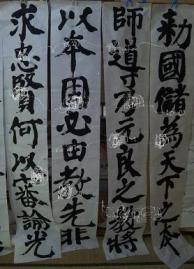 勅國儲為天下之本
師導乃元良之教將
以本固必由教先非
求忠賢何以審諭光